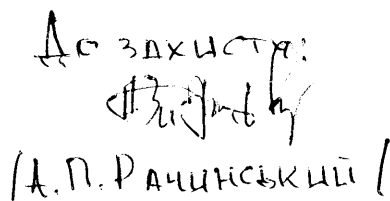 До захисту:
/А.П. Рачинський/